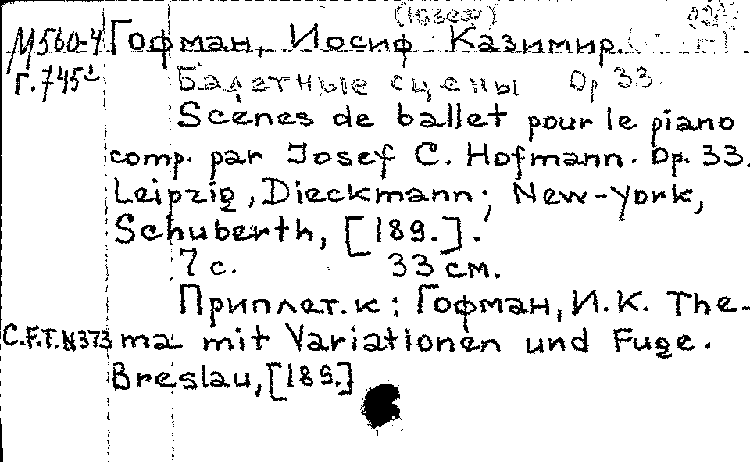 (Iosef)
М560-4 Гофман, Иосиф Казимир.
Г.745² Балетные сцены Op 33.
Scènes de ballet pour le piano
comp. par Josef C. Hofmann. Op. 33.
Leipzig, Dieckmann; New-York,
Schuberth, [189.].
7 с. 33 см.
Приплет. к: Гофман, И.К. The-
C.F.T.N373 ma mit Variationen und Fuge.
Breslau, [189.]